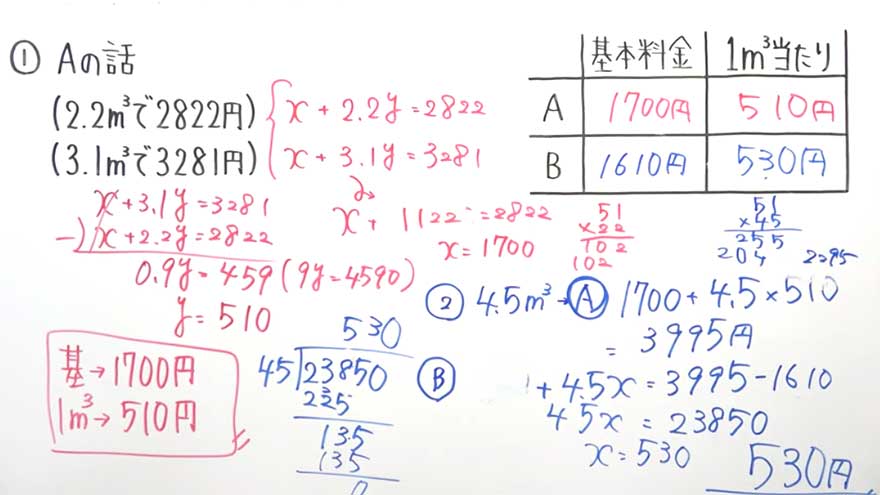 ① Aの話
(2.2m³で2822円) x + 2.2y = 2822
(3.1m³で3281円) x + 3.1y = 3281
x + 3.1y = 3281
-) x + 2.2y = 2822
0.9y = 459 (9y = 4590)
y = 510
x + 1122 = 2822
x = 1700
51
×22
102
102
基→1700円
1m³→510円
基本料金 1m³当たり
A 1700円 510円
B 1610円 530円
51
×45
255
204
2295
② 4.5m³→Ⓐ 1700 + 4.5×510
= 3995円
Ⓑ
+ 4.5x = 3995-1610
45x = 23850
x = 530
530円
530
45)23850
225
135
135
0